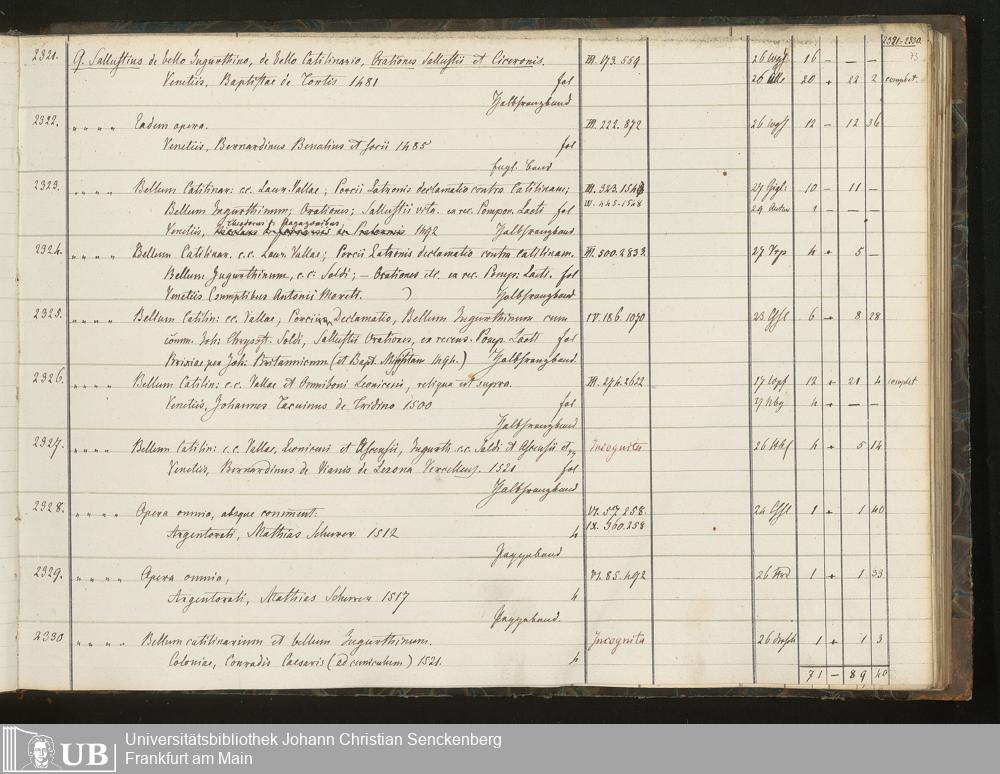 2321-2330.
73
2321. Q. Sallustius de bello Jugurthino, de bello Catilinario, Orationes Sallustii et Ciceronis. III. 173. 559 16 — — —
Venetiis, Baptista de Tortis 1481 fol 20 + 22 2 complet.
Halbfranzband
2322. " " " " Eadem opera. III. 222. 872 12 — 12 36
Venetiis, Bernardinus Benalius et socii 1485 fol
engl. Band
2323. " " " " Bellum Catilinar: c.c. Laur. Vallae; Porcii Latronis declamatio contra Catilinam; III. 323. 10 — 11 —
Bellum Jugurthinum; Orationes; Sallustii vita. ex rec. Pompon. Laeti fol IV. 445. 1548 1 — — —
Venetiis, Theodorus de Ragazonibus 1492 Halbfranzband
2324. " " " " Bellum Catilinar. c.c. Laur. Vallae; Porcii Latronis declamatio contra Catilinam. III. 500. 2833. 4 + 5 —
Bellum Jugurthinum, c.c. Soldi; — Orationes etc. ex rec. Pomp. Laeti. fol
Venetiis sumptibus Antonii Moreti. ) Halbfranzband
2325. " " " " Bellum Catilin: cc. Vallae; Porcii Declamatio, Bellum Jugurthinum cum IV. 186. 1070 6 — 8 28
comm. Joh: Chrysost. Soldi, Sallustii Orationes, ex recens. Pomp. Laeti fol
Brixiae per Joh: Britannicum (et Bapt. 1494.) Halbfranzband.
2326. " " " " Bellum Catilin: c.c. Vallae et Omniboni Leoniceni, reliqua ut supra. III. 274. 2622 12 + 21 4 complet
Venetiis, Johannes Tacuinus de Tridino 1500 fol 4 + — —
Halbfranzband
2327. " " " " Bellum Catilin: c.c. Vallae, Leoniceni et Ascensii, Jugurth. c.c. Soldi et Ascensii etc, Incognita 4 + 5 14
Venetiis, Bernardinus de Vianis de Lexona Vercellens. 1521 fol
Halbfranzband
2328. " " " " Opera omnia, absque comment. VI. 57. 258. 1 + 1 40
Argentorati, Mathias Schurer 1512 4 IX. 360. 258
Pappband
2329. " " " " Opera omnia, VI. 85. 492 1 + 1 33
Argentorati, Mathias Schurer 1517 4
Pappband.
2330 " " " " Bellum catilinarium et bellum Jugurthinum. Incognita 1 + 1 3
Coloniae, Conradis Caesaris (ad cuniculum) 1521. 4
71 — 89 40
UB Universitätsbibliothek Johann Christian Senckenberg
Frankfurt am Main